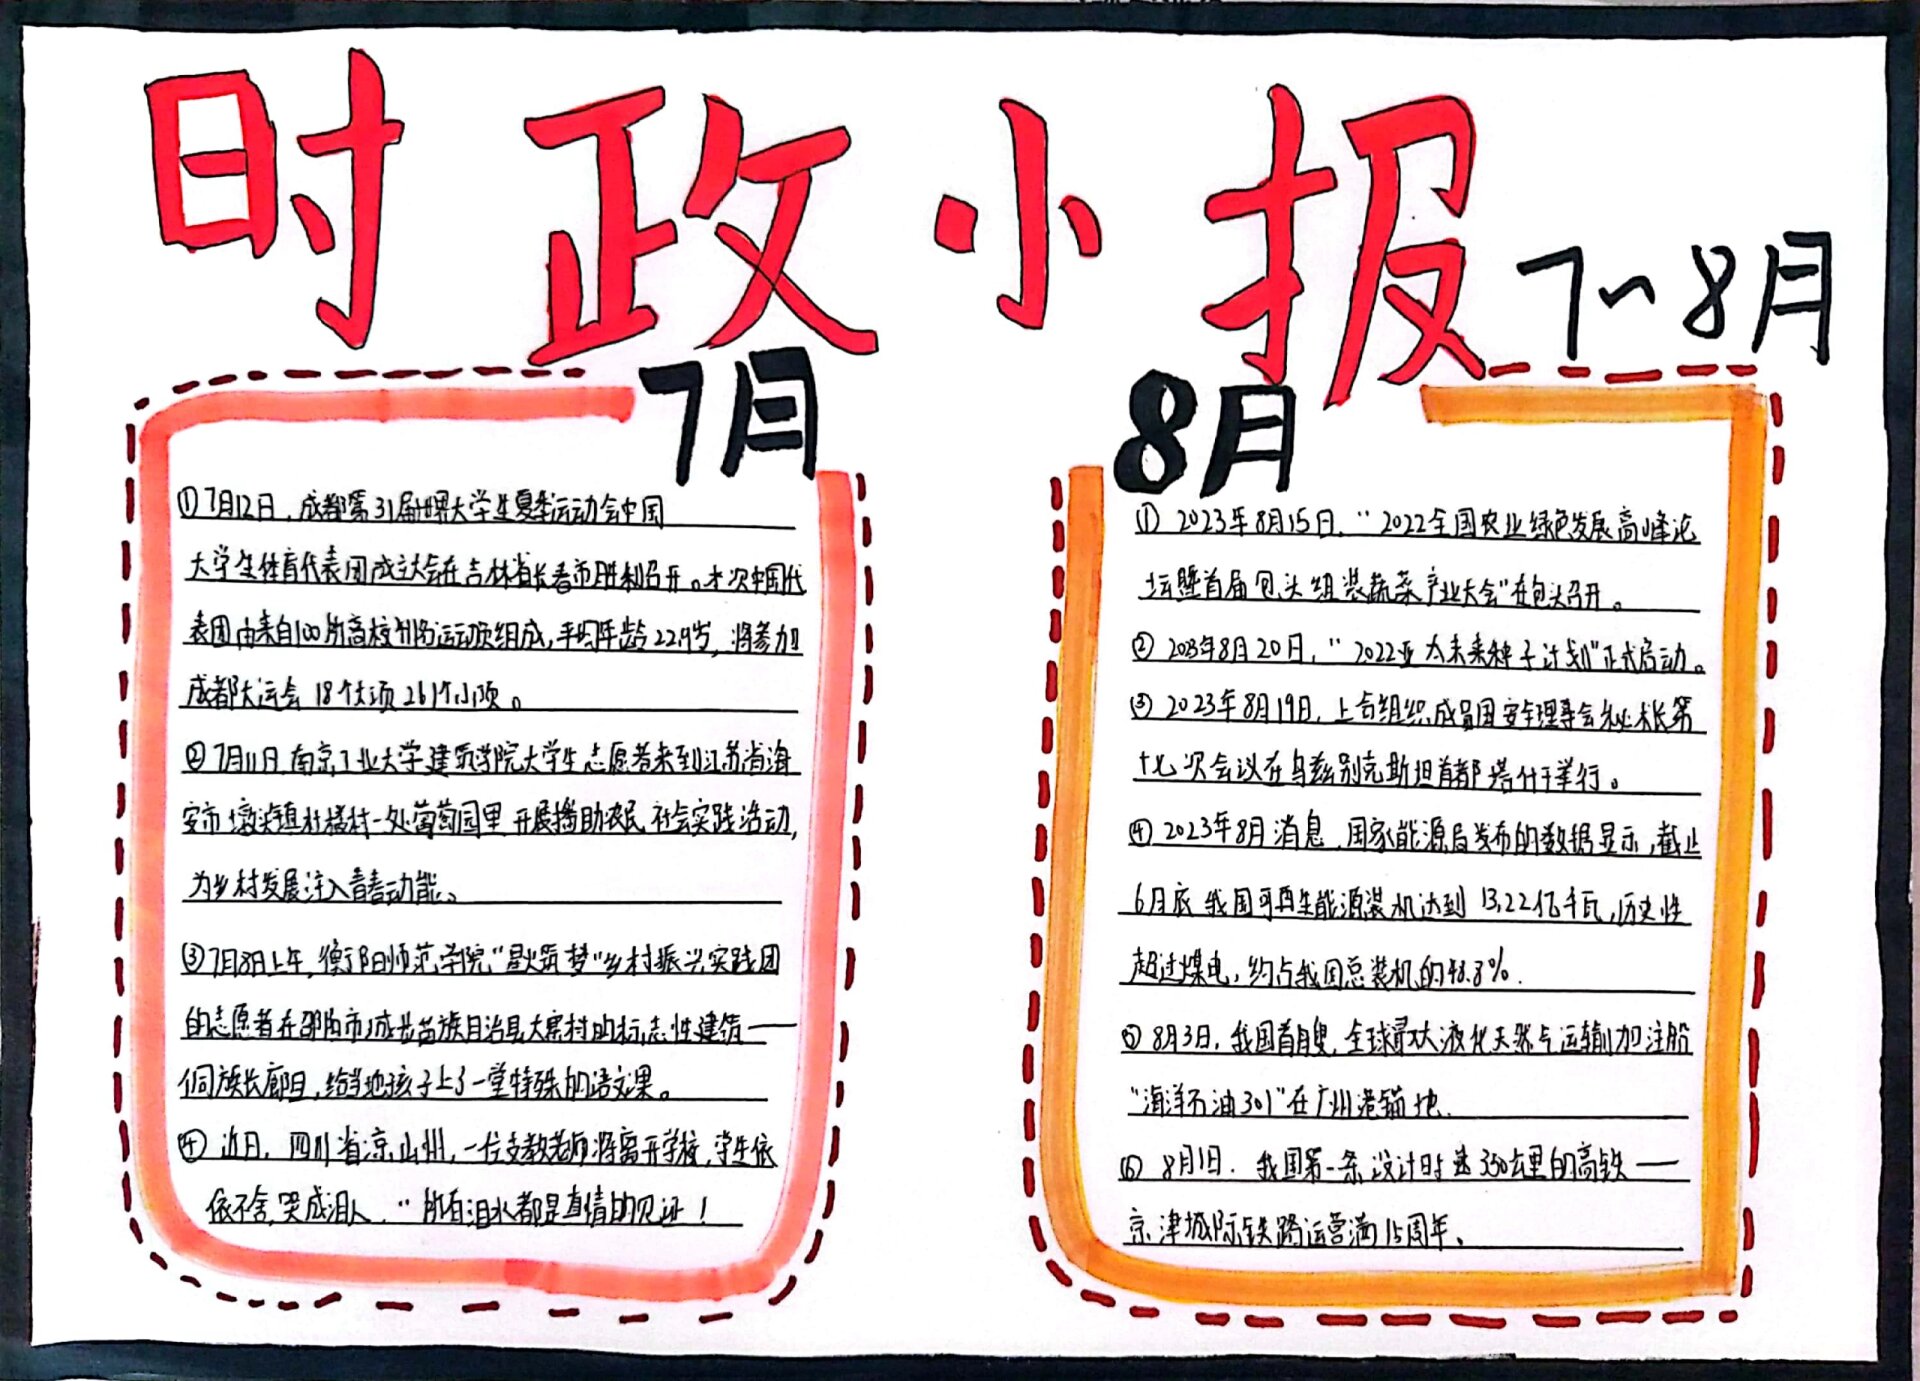 时政小报
7~8月
7月
① 7月12日，成都第31届世界大学生夏季运动会中国
大学生体育代表团成立大会在吉林省长春市胜利召开。本次中国代
表团由来自100所高校 运动员组成，平均年龄22.9岁，将参加
成都大运会18个大项261个小项。
② 7月11日，南京工业大学建筑学院大学生志愿者来到江苏省海
安市墩头镇杜楼村一处葡萄园里开展援助农民社会实践活动，
为乡村发展注入青春动能。
③ 7月8日上午，衡阳师范学院"星火筑梦"乡村振兴实践团
的志愿者在邵阳市城步苗族自治县大寨村的标志性建筑——
侗族长廊里，给当地孩子上了一堂特殊的语文课。
④ 近日，四川省凉山州，一位支教老师将离开学校，学生依
依不舍，哭成泪人，"所有泪水都是真情的见证！
8月
① 2023年8月15日，"2022全国农业绿色发展高峰论
坛暨首届包头组装蔬菜产业大会"在包头召开。
② 2023年8月20日，"2022亚太未来种子计划"正式启动。
③ 2023年8月19日，上合组织成员国安全理事会秘书长第
十七次会议在乌兹别克斯坦首都塔什干举行。
④ 2023年8月消息，国家能源局发布的数据显示，截止
6月底我国可再生能源装机达到13.22亿千瓦，历史性
超过煤电，约占我国总装机的48.8%．
⑤ 8月3日，我国首艘，全球最大液化天然气运输加注船
"海洋石油301"在广州港锚地．
⑥ 8月1日，我国第一条设计时速350公里的高铁——
京津城际铁路运营满15周年。